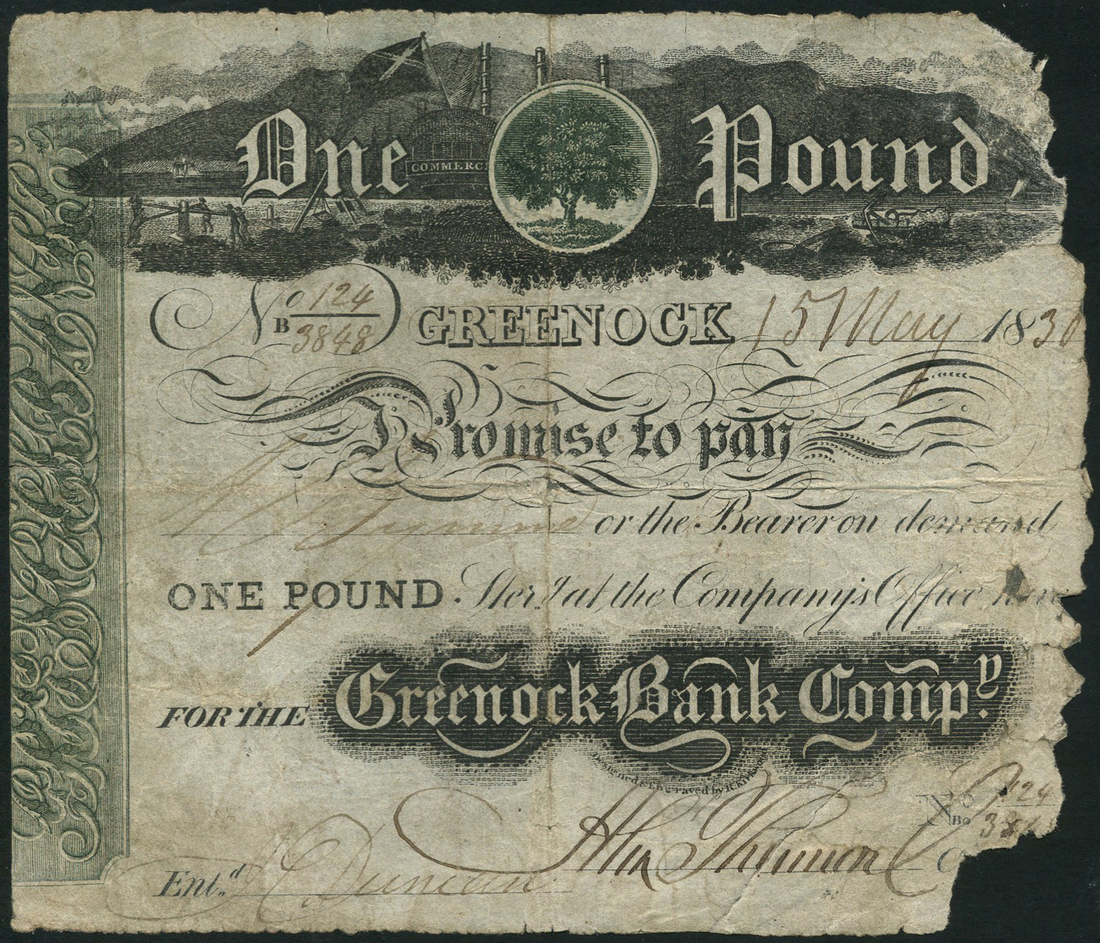 One Pound
COMMERC
No 124
B 3848 GREENOCK 15 May 1830
Promise to pay
or the Bearer on demand
ONE POUND Sterg at the Company's Office here
FOR THE Greenock Bank Compy.
Designed & Engraved by
No 124
Bo 384
Entd. Duncan Thomson Co